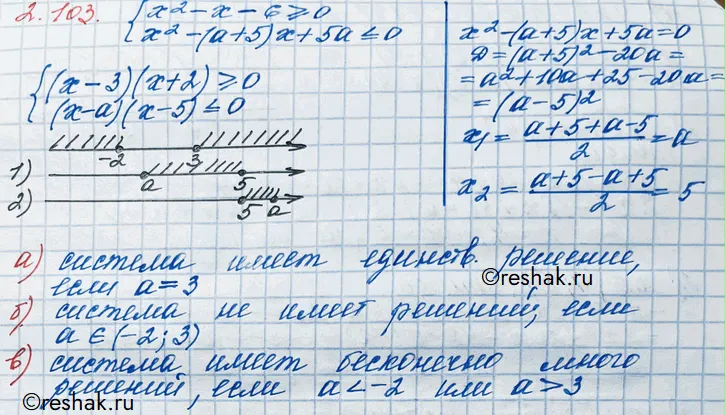 2.103. { x² - x - 6 ≥ 0
x² - (a+5)x + 5a ≤ 0
{ (x-3)(x+2) ≥ 0
(x-a)(x-5) ≤ 0
-2 3
1) a 5
2) 5 a
x² - (a+5)x + 5a = 0
D = (a+5)² - 20a =
= a² + 10a + 25 - 20a =
= (a-5)²
x₁ = (a+5+a-5)/2 = a
x₂ = (a+5-a+5)/2 = 5
а) система имеет единств. решение,
если a = 3
б) система не имеет решений, если
a ∈ (-2; 3)
в) система имеет бесконечно много
решений, если a < -2 или a > 3
©reshak.ru
©reshak.ru